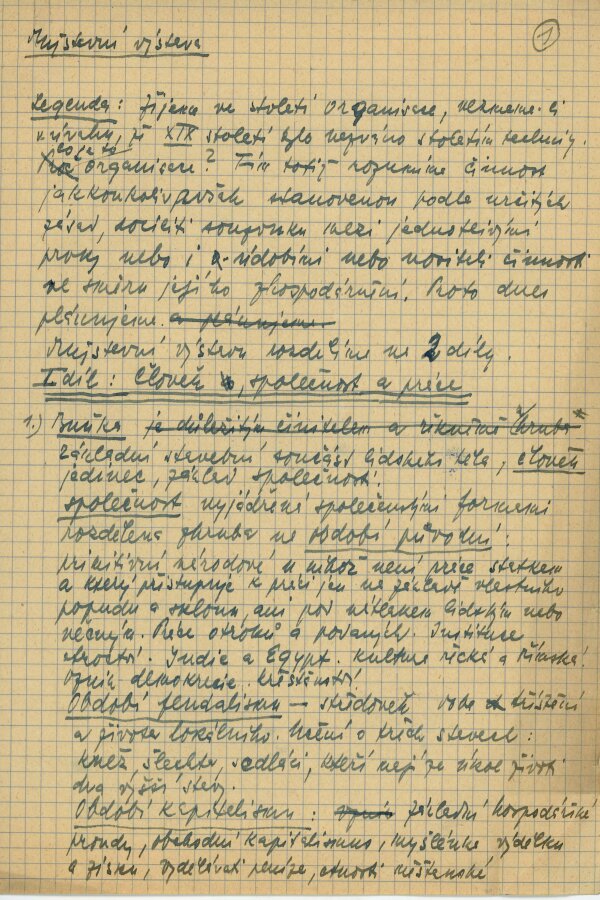 1
výstava
Legenda: Žijeme ve století organisace, vezmeme-li
v úvahu, že XIX století bylo nazváno stoletím techniky.
Co je to organisace? Tím totiž rozumíme činnost
jakkoukoliv avšak stanovenou podle určitých
zásad, docíliti souzvuku mezi jednotlivými
prvky nebo i údobími nebo nositeli činnosti
ve směru jejího zhospodárnění. Proto dnes
plánujeme. a plánujeme
výstavu rozdělíme na 2 díly.
I. díl: Člověk, společnost a práce
1.) Buňka je důležitým činitelem a říkáme zhruba
základní stavební součást lidského těla, člověk
jedinec, základ společnosti.
společnost vyjádření společenskými formami
rozdělena zhruba na období původní:
primitivní národové u nichž není práce statkem
a který přistupuje k práci jen na základě vlastního
popudu a sklonu, ani pod nátlakem lidským nebo
věcným. Práce otroků a poddaných. Instituce
otroctví. Indie a Egypt. Kultura řecká a římská.
Vznik demokracie. křesťanství
Období feudalismu – středověk doba tříštění
a života lokálního. Učení o třech stavech:
kněz, šlechta, sedláci, kteří mají za úkol živiti
dva vyšší stavy.
Období kapitalismu: vznik základní hospodářské
proudy, obchodní kapitalismus, myšlenka výdělku
a zisku, vydělávati peníze, ctnosti měšťanské